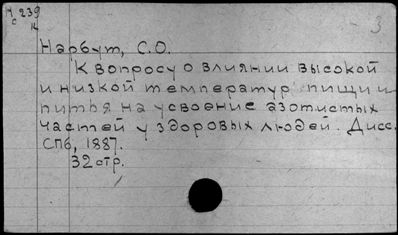 М 239
с
14
3
Нарбут, С.О.
К вопросу о влиянии высокой
и низкой температур пищи и
питья на усвоение азотистых
частей у здоровых людей. Дисс.
СПб, 1887.
32 стр.